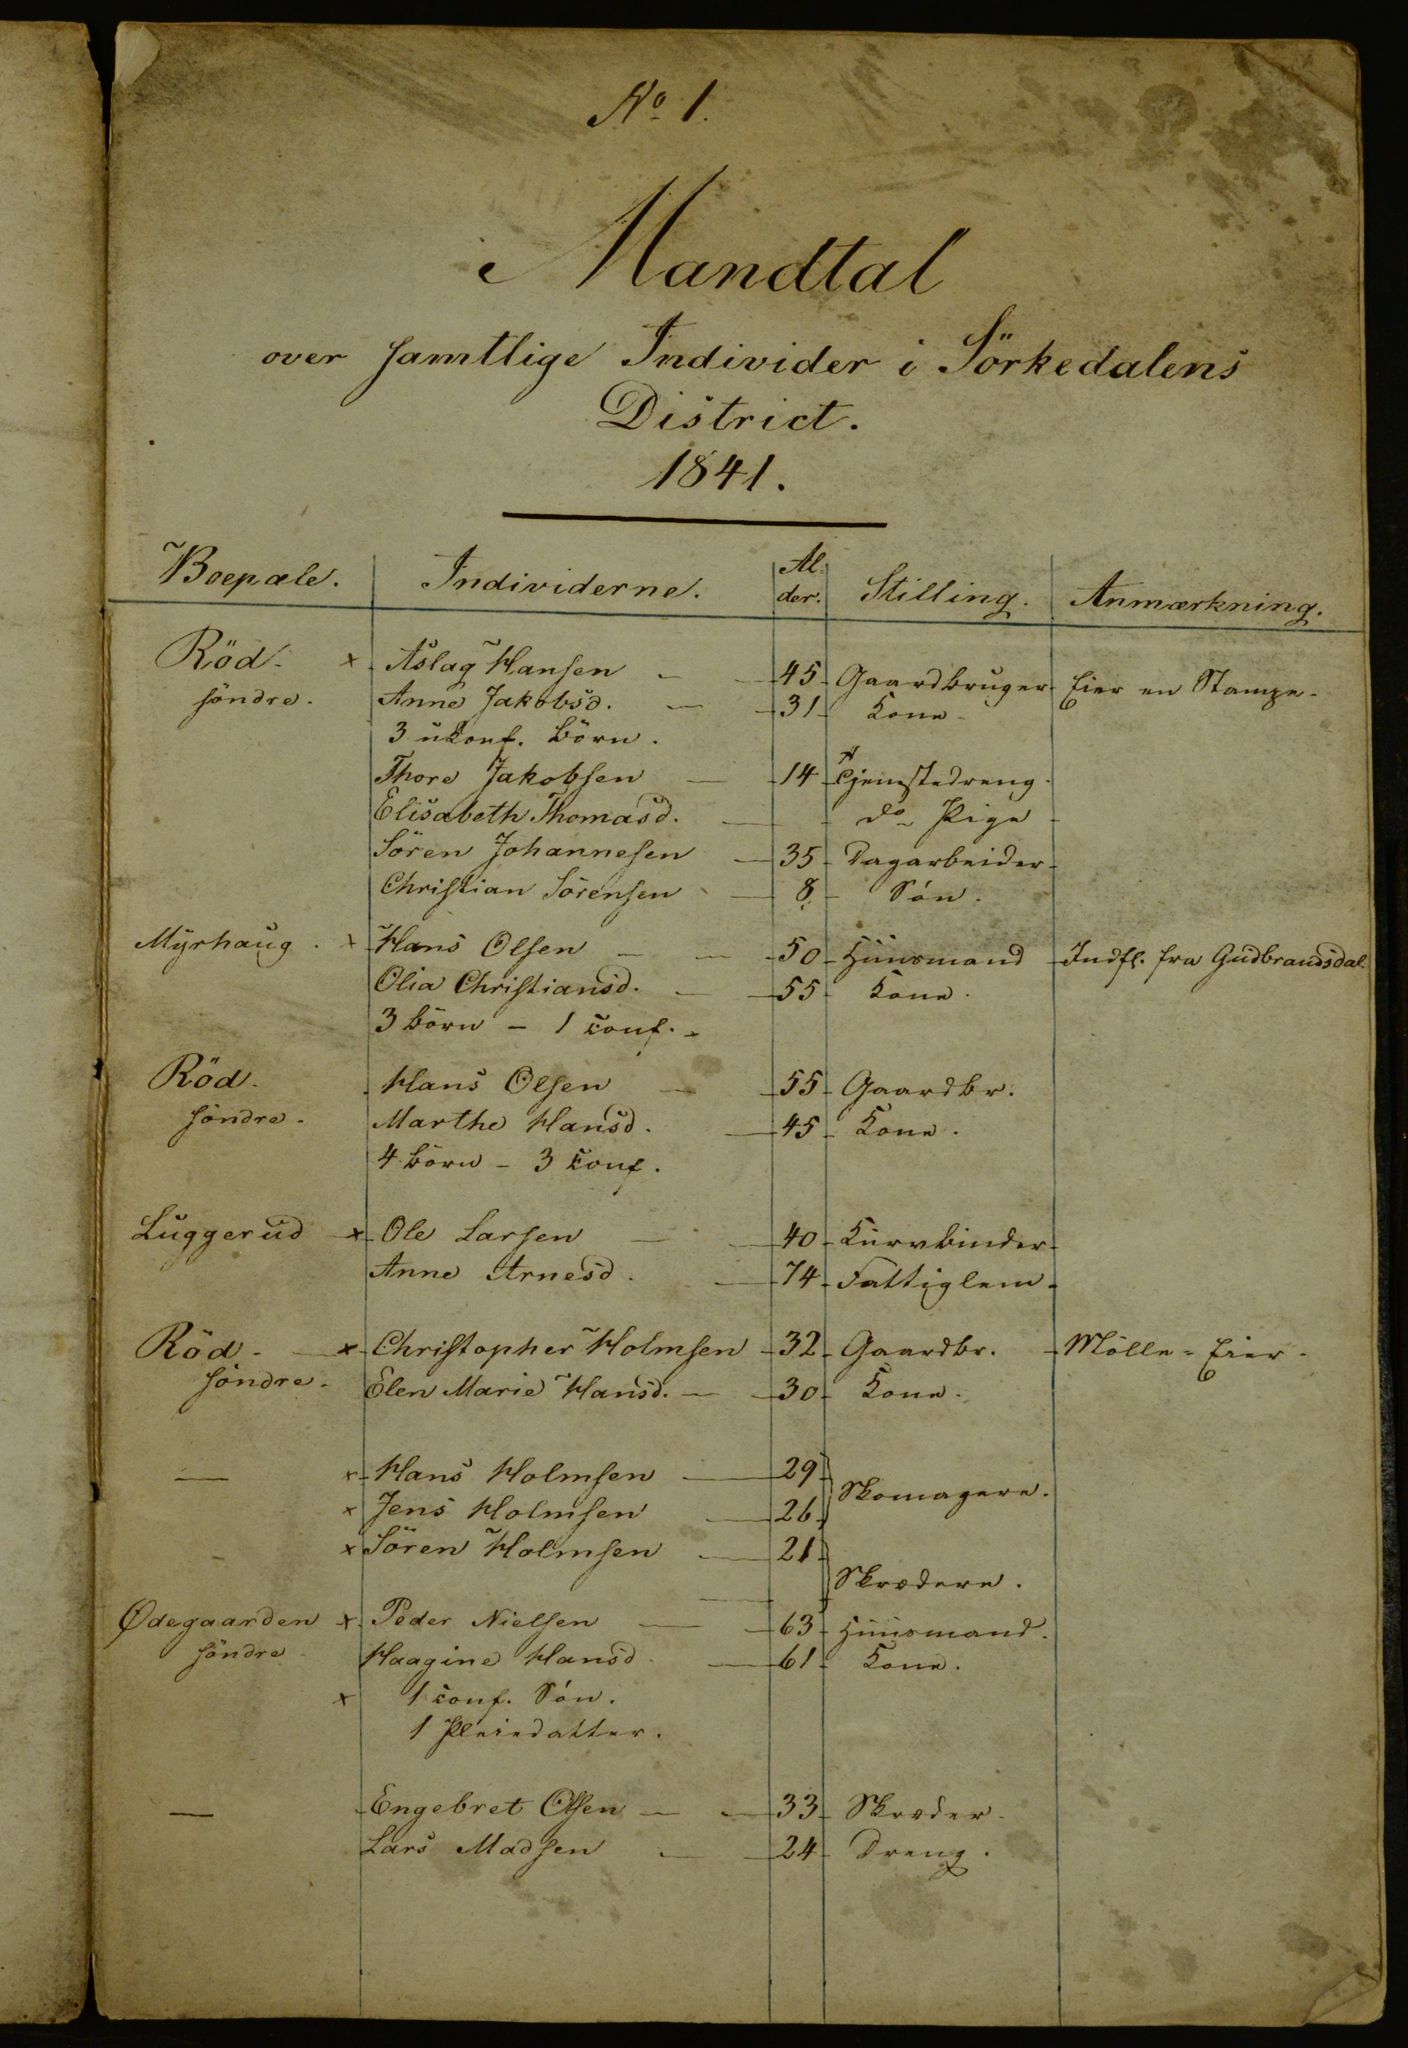 No 1.
Mandtal
over samtlige Individer i Sörkedalens
District.
1841.
Boepæle. Individerne. Al- der. Stilling. Anmærkning.
Röd x Aslag Hansen 45 Gaardbruger. Eier en Stampe.
söndre. Anne Jakobsd. 31 Kone
3 ukonf. Börn.
Thore Jakobsen 14 Tjenstedreng.
Elisabeth Thomasd. do Pige
Sören Johannesen 35 Dagarbeider
Christian Sörensen 8 Sön.
Myrhaug. x Hans Olsen 50 Huusmand Indfl. fra Gudbrandsdal.
Olia Christiansd. 55 Kone.
3 Börn - 1 conf.
Röd Hans Olsen 55 Gaardbr.
söndre. Marthe Hansd. 45 Kone.
4 Börn - 3 conf.
Luggerud x Ole Larsen 40 Kurvbinder
Anne Arnesd. 74 Fattiglem
Röd x Christopher Holmsen 32 Gaardbr. Mölle-Eier.
söndre. Elen Marie Hansd. 30 Kone.
— x Hans Holmsen 29 Skomagere.
x Jens Holmsen 26
x Sören Holmsen 21
Skrædere.
Ødegaarden x Peder Nielsen 63 Huusmand.
söndre Haagine Hansd. 61 Kone.
x 1 conf. Sön.
1 Pleiedatter.
— Engebret Olsen 33 Skræder.
Lars Madsen 24 Dreng.